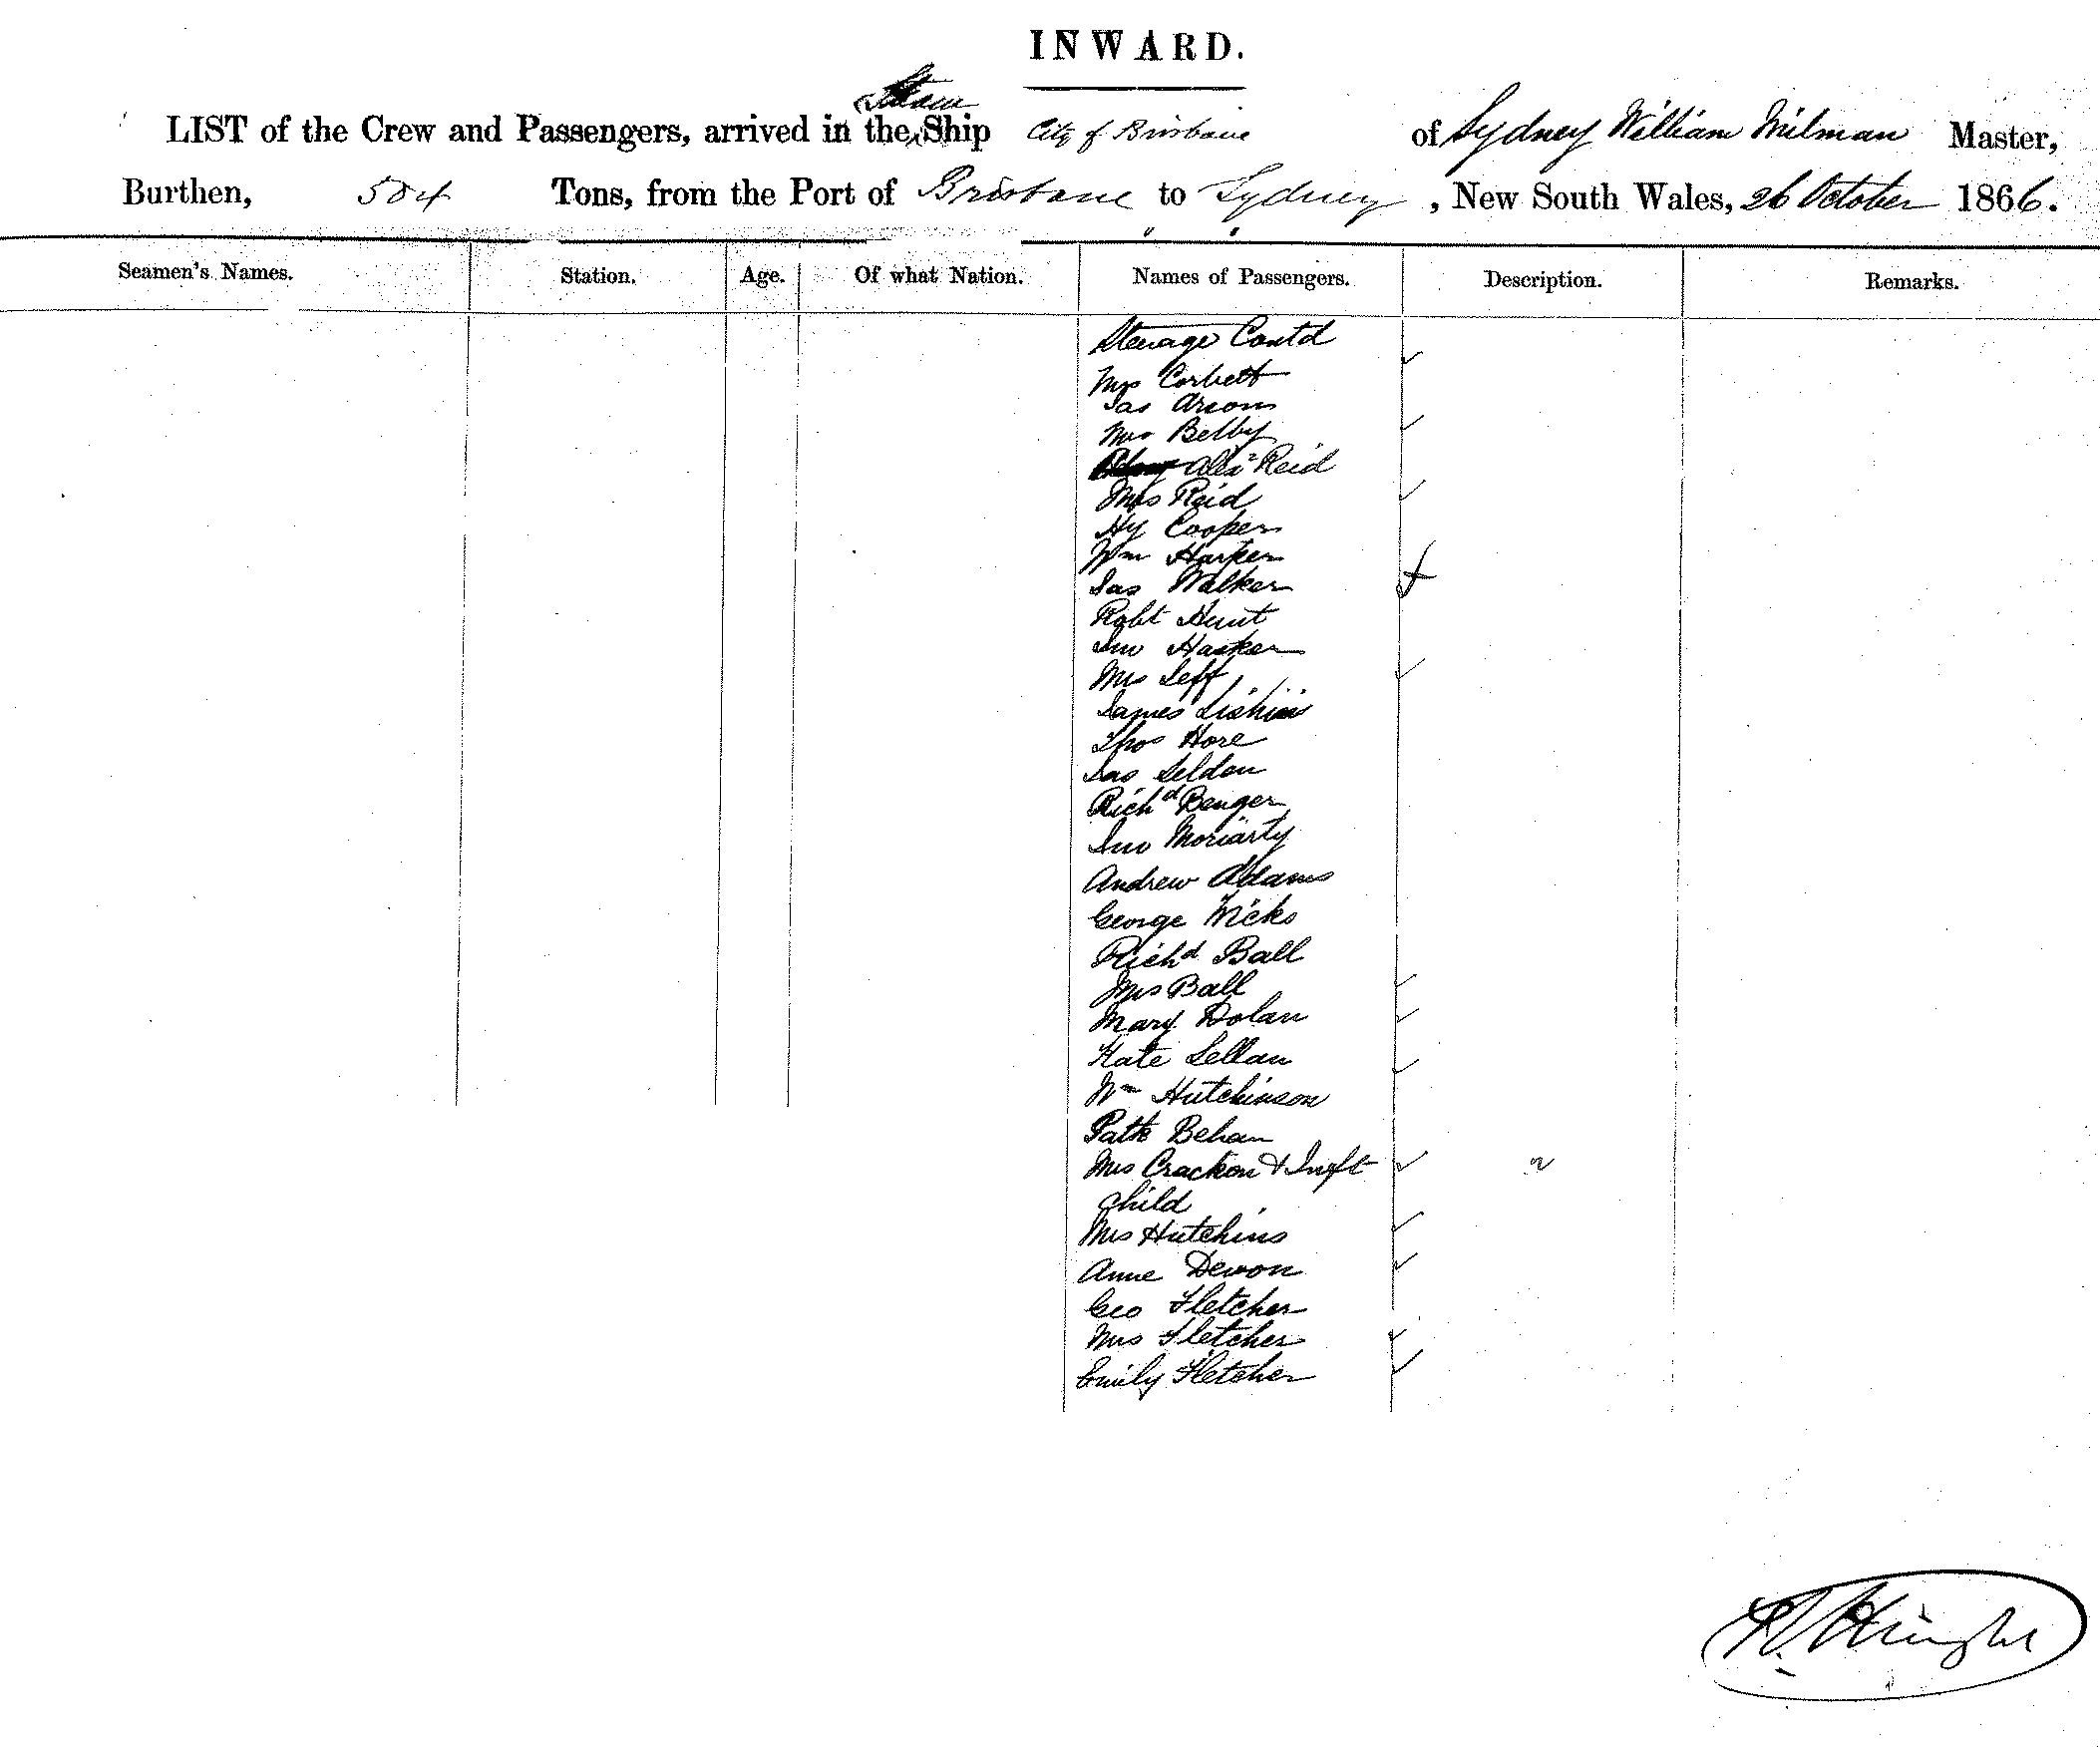 INWARD.
Steam
LIST of the Crew and Passengers, arrived in the Ship City of Brisbane of Sydney William Milman Master,
Burthen, 504 Tons, from the Port of Brisbane to Sydney, New South Wales, 26 October 1866.
Seamen's Names. Station. Age. Of what Nation. Names of Passengers. Description. Remarks.
Steerage Contd
Mrs Corbett
Jas
Mrs Belby
Alexr Reid
Mrs Reid
Hy Cooper
Wm Harper
Jas Walker
Robt Hunt
Jno Hasker
Mrs Jeff
James
Thos Hore
Jas Seldon
Richd Benger
Jno Moriarty
Andrew Adams
George Wicks
Richd Ball
Mrs Ball
Mary Dolan
Kate Lellan
Wm Hutchinson
Patk Behan
Mrs Crackon & Inft
child
Mrs Hutchins
Anne Devon
Geo Fletcher
Mrs Fletcher
Emily Fletcher